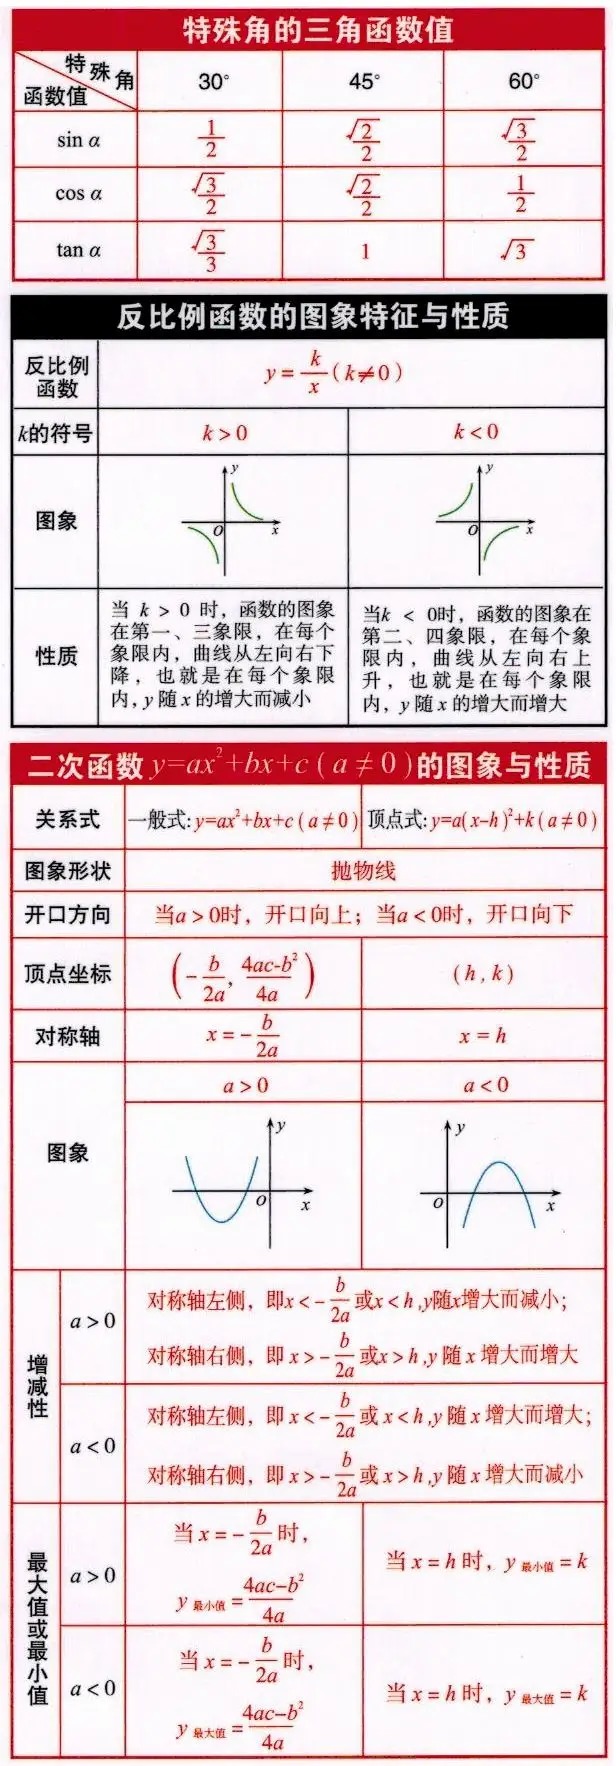 特殊角的三角函数值
特殊角
函数值
30°
45°
60°
sin α
1/2
√2/2
√3/2
cos α
√3/2
√2/2
1/2
tan α
√3/3
1
√3
反比例函数的图象特征与性质
反比例
函数
y = k/x (k≠0)
k的符号
k > 0
k < 0
图象
y
O
x
y
O
x
性质
当 k > 0 时，函数的图象
在第一、三象限，在每个
象限内，曲线从左向右下
降，也就是在每个象限
内，y 随 x 的增大而减小
当k < 0时，函数的图象在
第二、四象限，在每个象
限内，曲线从左向右上
升，也就是在每个象限
内，y 随 x 的增大而增大
二次函数 y=ax²+bx+c ( a ≠ 0 )的图象与性质
关系式
一般式: y=ax²+bx+c ( a ≠ 0 )
顶点式: y=a(x-h)²+k ( a ≠ 0 )
图象形状
抛物线
开口方向
当a > 0时，开口向上；当a < 0时，开口向下
顶点坐标
(-b/2a, 4ac-b²/4a)
(h, k)
对称轴
x = -b/2a
x = h
图象
a > 0
a < 0
y
O
x
y
O
x
增减性
a > 0
对称轴左侧，即x < -b/2a 或x < h,y随x增大而减小；
对称轴右侧，即 x > -b/2a 或x > h,y 随 x 增大而增大
a < 0
对称轴左侧，即 x < -b/2a 或 x < h,y 随 x 增大而增大；
对称轴右侧，即 x > -b/2a 或 x > h,y 随 x 增大而减小
最大值或最小值
a > 0
当 x = -b/2a 时，
y 最小值 = 4ac-b²/4a
当 x = h 时，y 最小值 = k
a < 0
当 x = -b/2a 时，
y 最大值 = 4ac-b²/4a
当 x = h 时，y 最大值 = k